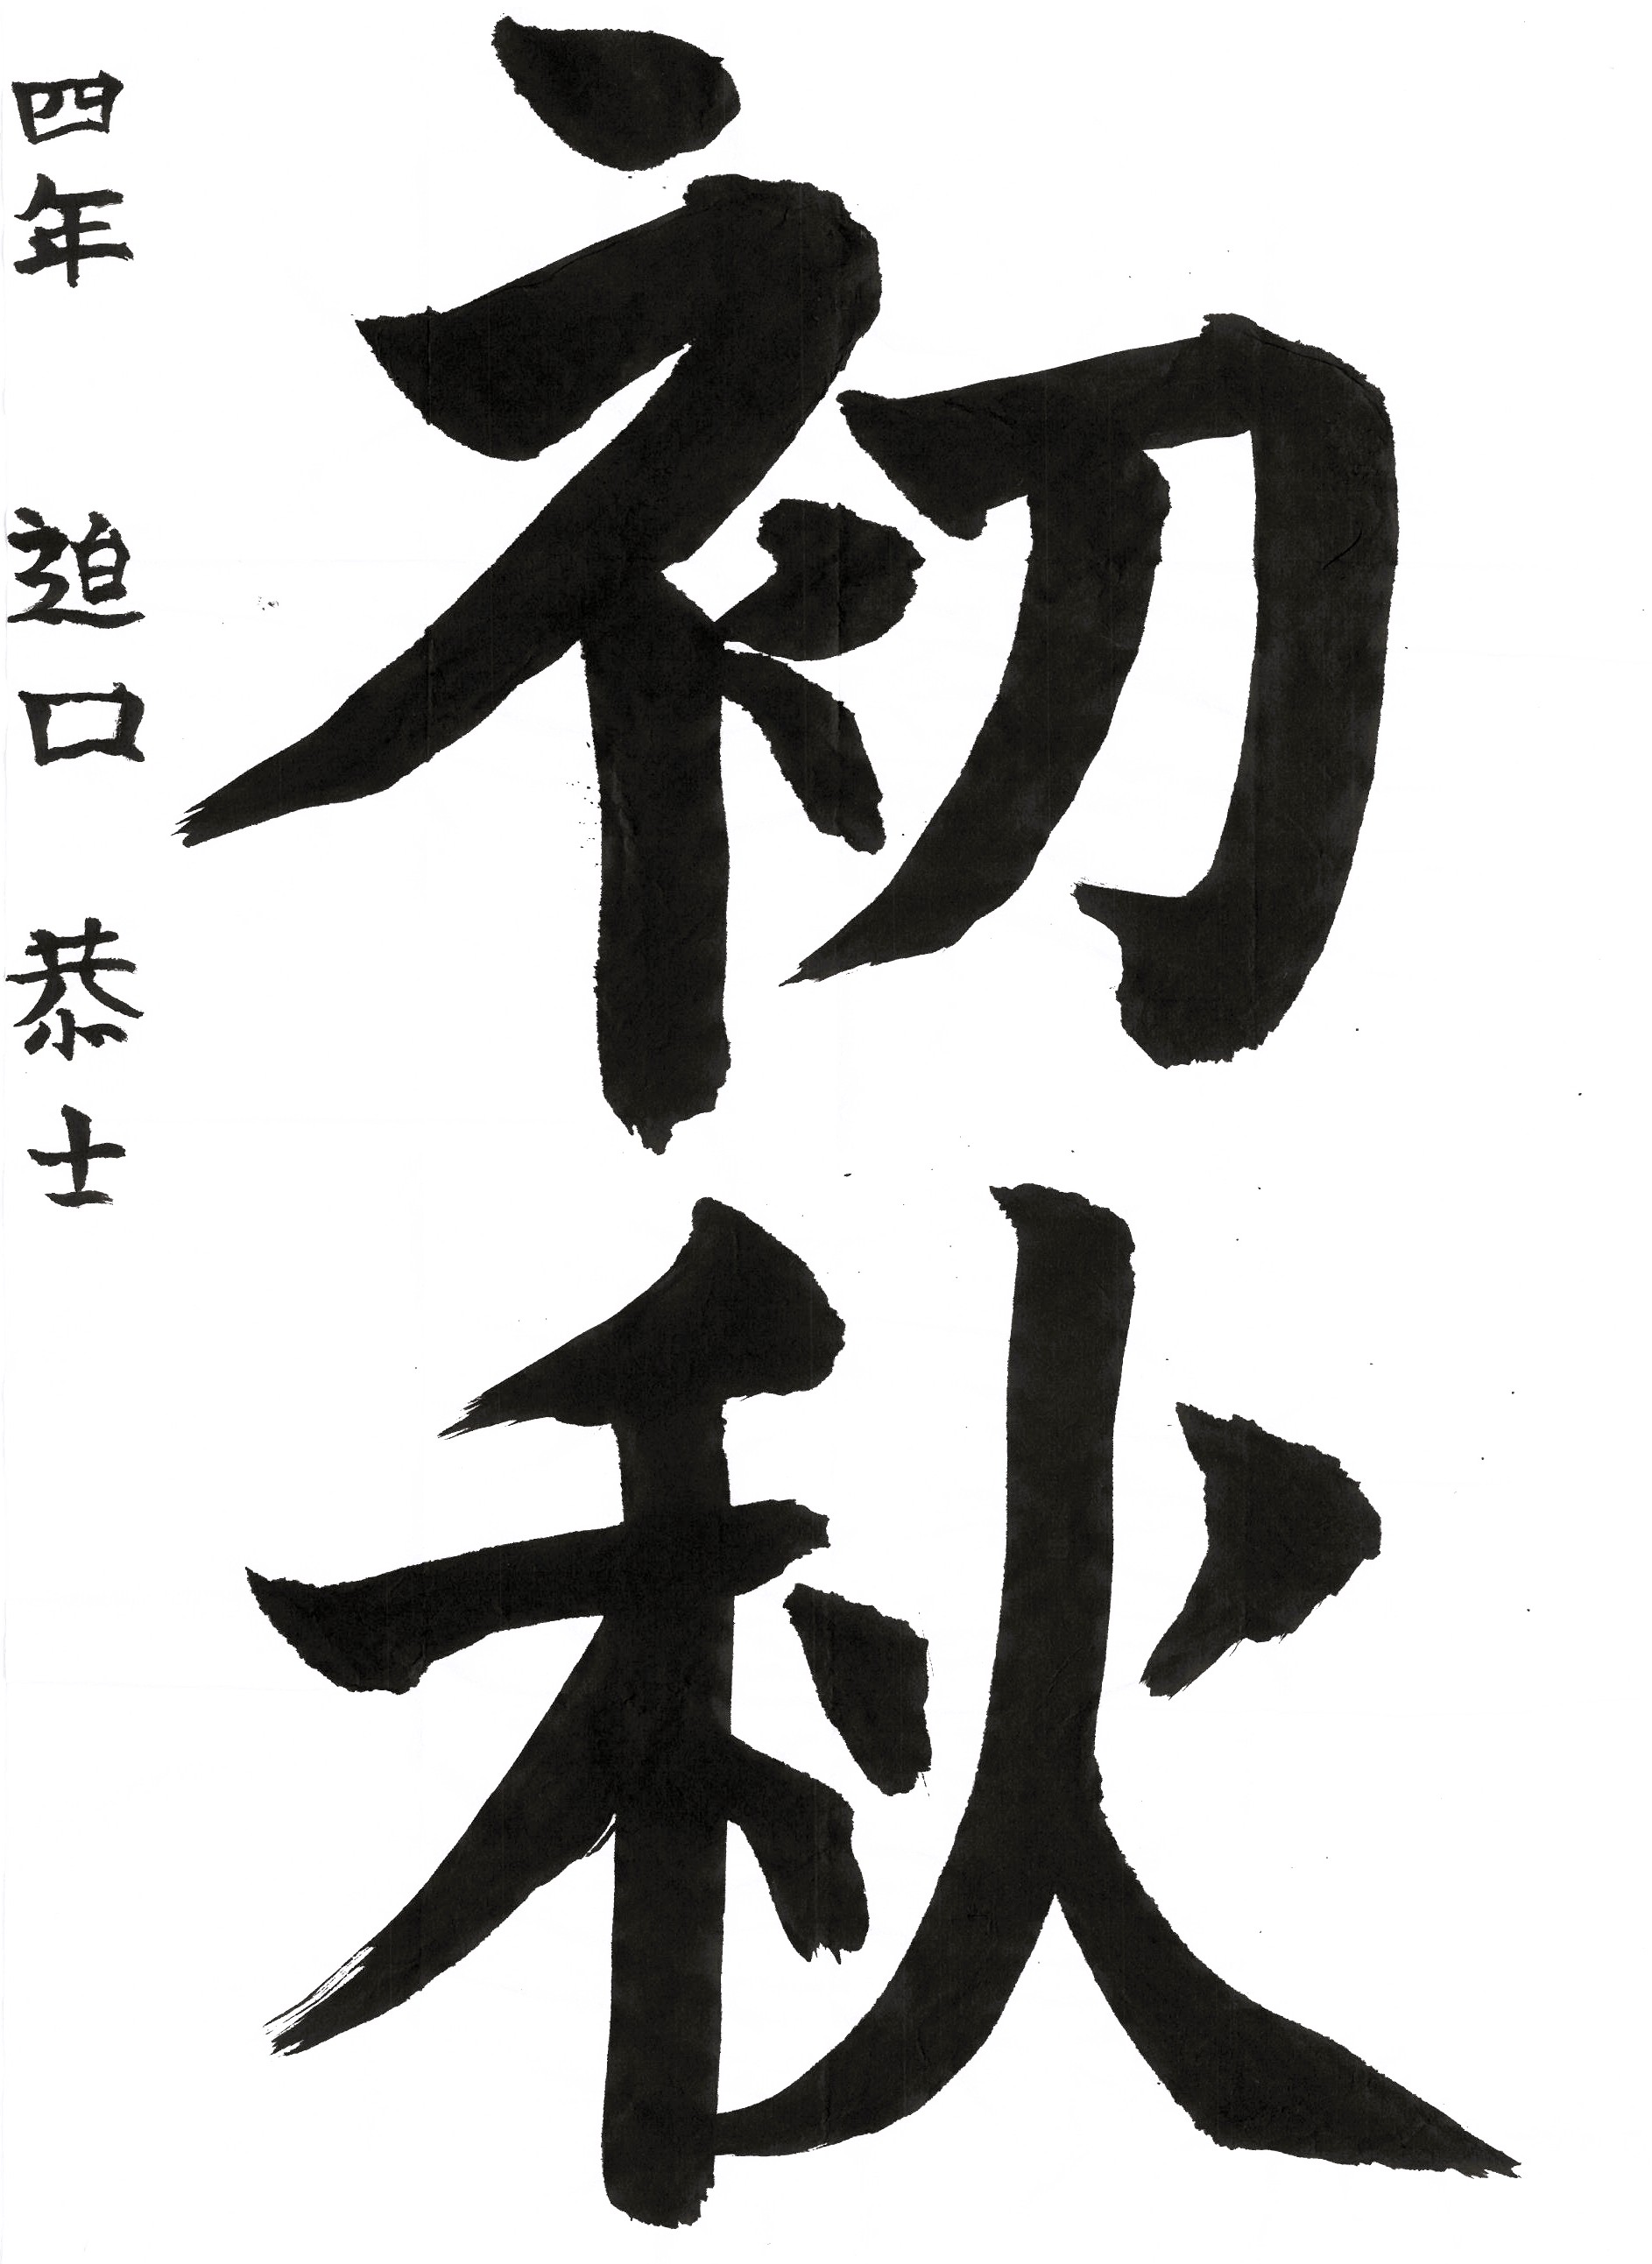 初秋
四年 迫口 恭士